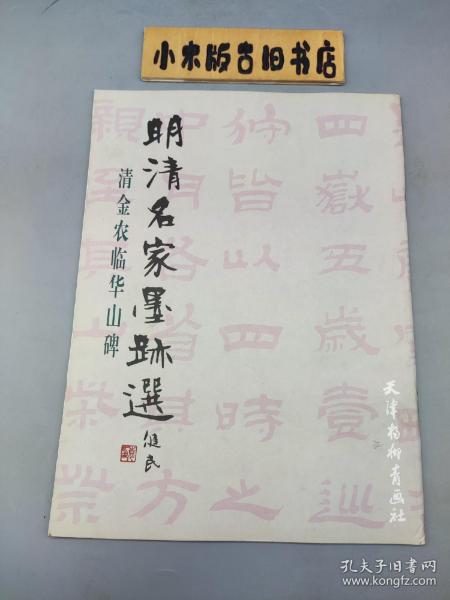 小木版古旧书店
明清名家墨跡選
清金农临华山碑
健民
四嶽五歲壹巡
狩皆以四時之
中月各省其方
親至其山
天津杨柳青画社
孔夫子旧书网
www.kongfz.com